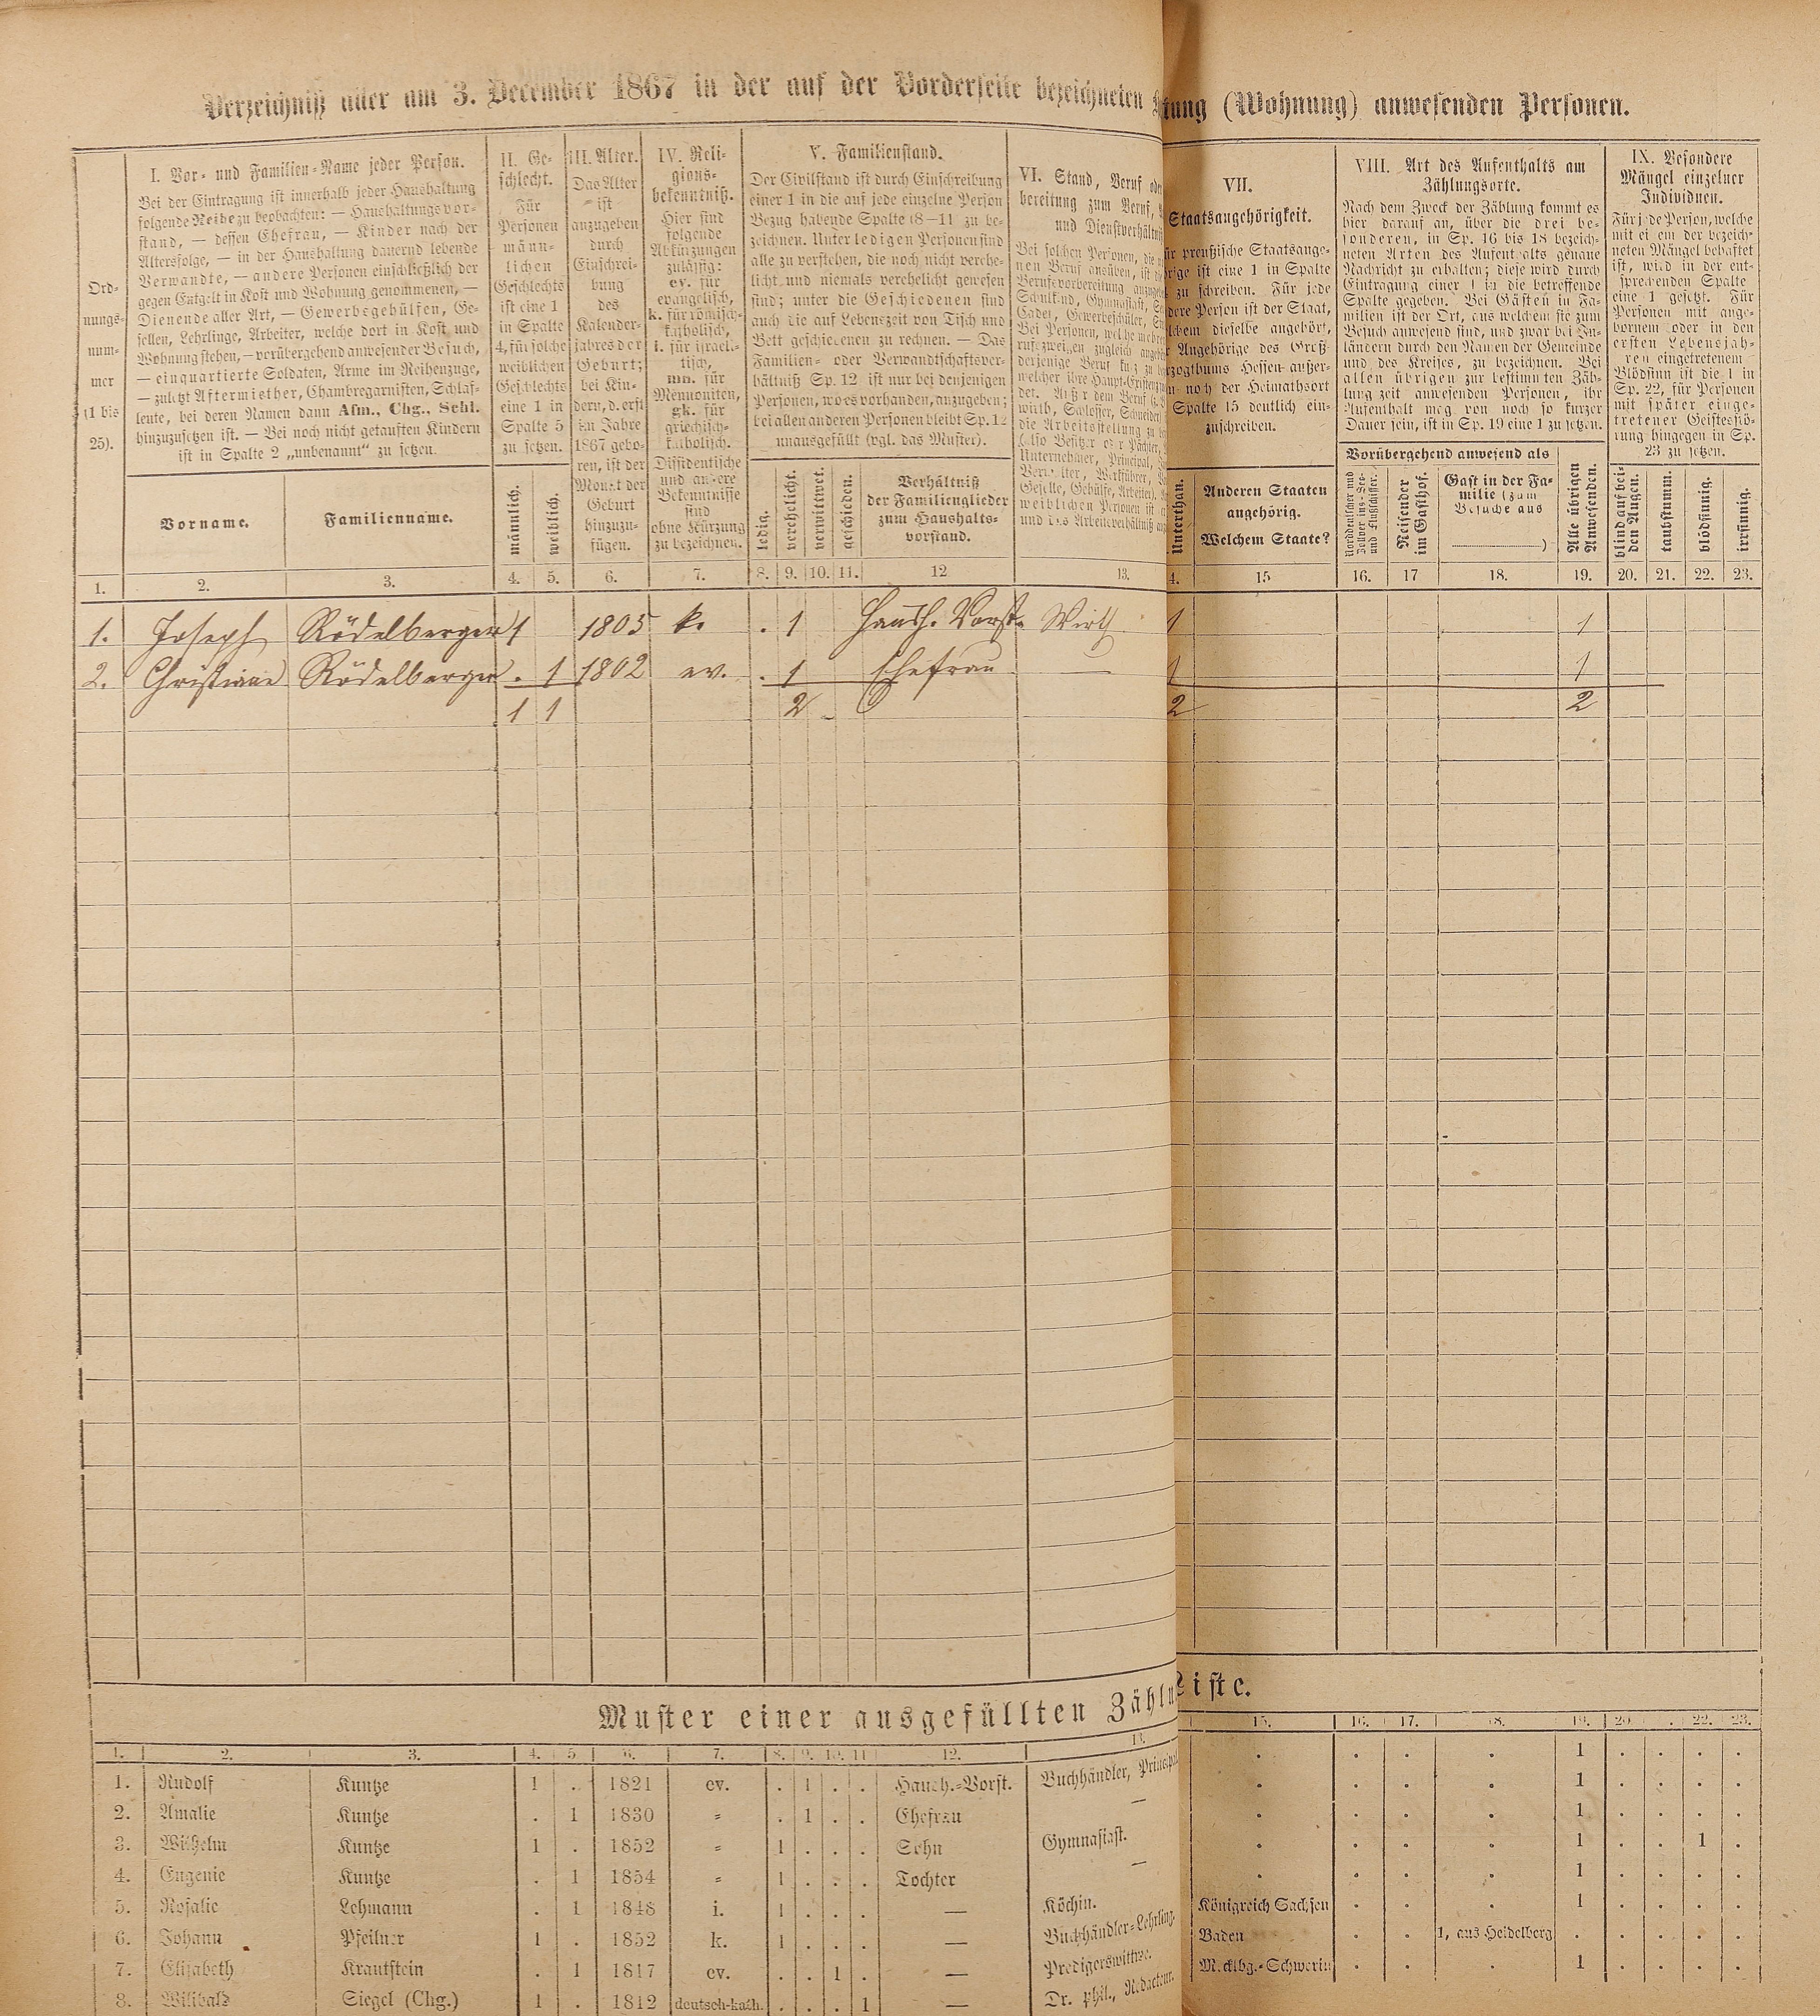 Verzeichniß aller am 3. December 1867 in der auf der Vorderseite bezeichneten
tung (Wohnung) anwesenden Personen.
Ord-
nungs-
num-
mer
(1 bis
25).
I. Vor- und Familien-Name jeder Person.
Bei der Eintragung ist innerhalb jeder Haushaltung
folgende Reihe zu beobachten: — Haushaltungsvor-
stand, — dessen Ehefrau, — Kinder nach der
Altersfolge, — in der Haushaltung dauernd lebende
Verwandte, — andere Personen einschließlich der
gegen Entgelt in Kost und Wohnung genommenen, —
Dienende aller Art, — Gewerbsgehülfen, Ge-
sellen, Lehrlinge, Arbeiter, welche dort in Kost und
Wohnung stehen, — vorübergehend anwesender Besuch,
— einquartierte Soldaten, Arme im Reihenzuge,
— zuletzt Aftermiether, Chambregarnisten, Schlaf-
leute, bei deren Namen dann Afm., Chg., Schl.
hinzuzusetzen ist. — Bei noch nicht getauften Kindern
ist in Spalte 2 „unbenannt“ zu setzen.
Vorname.
Familienname.
II. Ge-
schlecht.
Für
Personen
männ-
lichen
Geschlechts
ist eine 1
in Spalte
4, für solche
weiblichen
Geschlechts
eine 1 in
Spalte 5
zu setzen.
männlich.
weiblich.
III. Alter.
Das Alter
ist
anzugeben
durch
Einschrei-
bung
des
Kalender-
jahres der
Geburt;
bei Kin-
dern, d. erst
im Jahre
1867 gebo-
ren, ist der
Monat der
Geburt
hinzuzu-
fügen.
IV. Reli-
gions-
bekenntniß.
Hier sind
folgende
Abkürzungen
zulässig:
ev. für
evangelisch,
k. für römisch-
katholisch,
i. für israeli-
tisch,
mn. für
Mennoniten,
gk. für
griechisch-
katholisch.
Dissidentische
und andere
Bekenntnisse
sind
ohne Kürzung
zu bezeichnen.
V. Familienstand.
Der Civilstand ist durch Einschreibung
einer 1 in die auf jede einzelne Person
Bezug habende Spalte (8—11) zu be-
zeichnen. Unter ledigen Personen sind
alle zu verstehen, die noch nicht verehe-
licht und niemals verehelicht gewesen
sind; unter die Geschiedenen sind
auch die auf Lebenszeit von Tisch und
Bett geschiedenen zu rechnen. — Das
Familien- oder Verwandtschaftsver-
hältniß Sp. 12 ist nur bei denjenigen
Personen, wo es vorhanden, anzugeben;
bei allen anderen Personen bleibt Sp. 12
unausgefüllt (vgl. das Muster).
ledig.
verehelicht.
verwittwet.
geschieden.
Verhältniß
der Familienglieder
zum Haushalts-
vorstand.
VI. Stand, Beruf oder
bereitung zum Beruf,
und Dienstverhältniß
Bei solchen Personen, die
nen Beruf ausüben, ist die
Berufsvorbereitung
Schulkind, Gymnasiast,
Cadet, Gewerbeschüler,
Bei Personen, welche mehreren
rufszweigen zugleich
derjenige Beruf
welcher ihre Haupt-Existenz
det. Außer dem Beruf
wirth, Schlosser, Schneider
die Arbeitsstellung zu
(also Besitzer oder Pächter,
Unternehmer, Principal,
Verwalter, Werkführer,
Geselle, Gehülfe, Arbeiter).
weiblichen Personen ist
und das Arbeitsverhältniß
VII.
Staatsangehörigkeit.
ür preußische Staatsange-
rige ist eine 1 in Spalte
zu schreiben. Für jede
dere Person ist der Staat,
lchem dieselbe angehört,
r Angehörige des Groß-
zogthums Hessen außer-
noch der Heimathsort
Spalte 15 deutlich ein-
zuschreiben.
Unterthan.
Anderen Staaten
angehörig.
Welchem Staate?
VIII. Art des Aufenthalts am
Zählungsorte.
Nach dem Zweck der Zählung kommt es
hier darauf an, über die drei be-
sonderen, in Sp. 16 bis 18 bezeich-
neten Arten des Aufenthalts genaue
Nachricht zu erhalten; diese wird durch
Eintragung einer 1 in die betreffende
Spalte gegeben. Bei Gästen in Fa-
milien ist der Ort, aus welchem sie zum
Besuch anwesend sind, und zwar bei In-
ländern durch den Namen der Gemeinde
und des Kreises, zu bezeichnen. Bei
allen übrigen zur bestimmten Zäh-
lungszeit anwesenden Personen, ihr
Aufenthalt mag von noch so kurzer
Dauer sein, ist in Sp. 19 eine 1 zu setzen.
Vorübergehend anwesend als
Norddeutscher und
Zollvereins-See-
und Flußschiffer.
Reisender
im Gasthof.
Gast in der Fa-
milie (zum
Besuche aus
)
Alle übrigen
Anwesenden.
IX. Besondere
Mängel einzelner
Individuen.
Für jede Person, welche
mit einem der bezeich-
neten Mängel behaftet
ist, wird in der ent-
sprechenden Spalte
eine 1 gesetzt. Für
Personen mit ange-
bornem oder in den
ersten Lebensjah-
ren eingetretenem
Blödsinn ist die 1 in
Sp. 22, für Personen
mit später einge-
tretener Geistesstö-
rung hingegen in Sp.
23 zu setzen.
blind auf bei-
den Augen.
taubstumm.
blödsinnig.
irrsinnig.
1. 2. 3. 4. 5. 6. 7. 8. 9. 10. 11. 12 13. 4. 15 16. 17 18. 19. 20. 21. 22. 23.
1. Joseph Rödelberger 1 1805 k. . 1 Haush. Vorst. Wirth 1 1
2. Christiane Rödelberger . 1 1802 ev. . 1 Ehefrau — 1 1
1 1 2 2 2
Muster einer ausgefüllten Zähl
Liste.
1. 2. 3. 4. 5 6. 7. 8. 9. 10. 11 12. 13. 15. 16. 17. 18. 19. 20 . 22. 23.
1. Rudolf Kuntze 1 . 1821 ev. . 1 . . Haush.-Vorst. Buchhändler, Principal . . . . 1 . . . .
2. Amalie Kuntze . 1 1830 = . 1 . . Ehefrau — . . . . 1 . . . .
3. Wilhelm Kuntze 1 . 1852 = 1 . . . Sohn Gymnasiast. . . . . 1 . . . .
4. Eugenie Kuntze . 1 1854 = 1 . . . Tochter — . . . . 1 . . 1 .
5. Rosalie Lehmann . 1 1848 i. 1 . . . — Köchin. . . . . 1 . . . .
6. Johann Pfeilner 1 . 1852 k. 1 . . . — Buchhändler-Lehrling. Königreich Sachsen . . . 1 . . . .
7. Elisabeth Krautstein . 1 1817 ev. . . 1 . — Predigerswittwe. Baden . . 1, aus Heidelberg . . . . .
8. Wilibald Siegel (Chg.) 1 . 1812 deutsch-kath. . . . 1 — Dr. phil., Redacteur. Mcklbg.-Schwerin . . . 1 . . . .